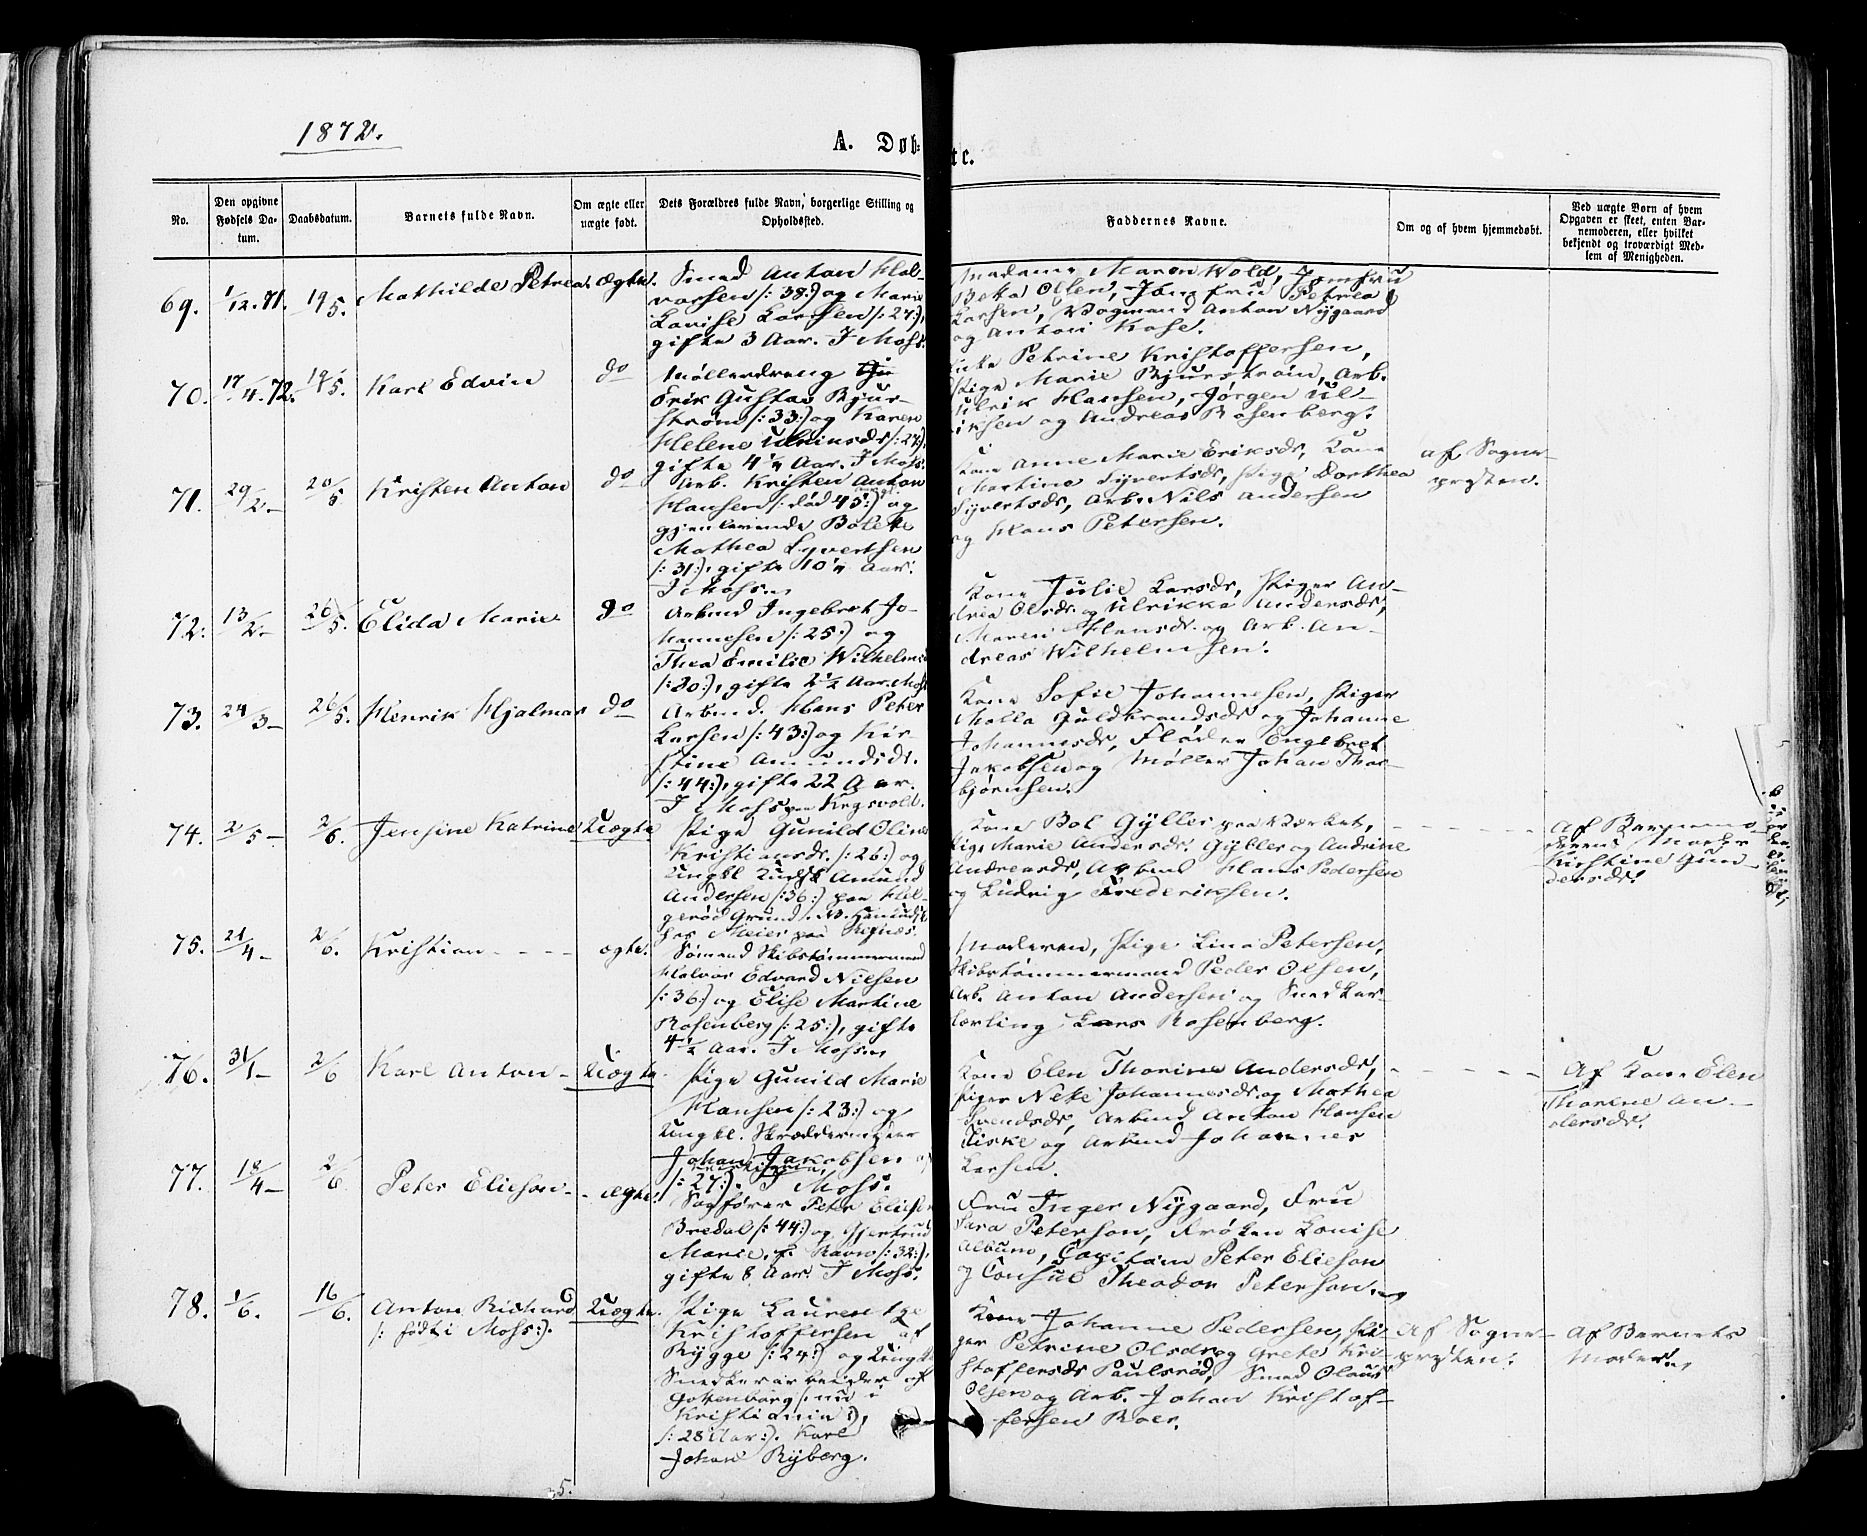 1872.
A. Døb-
te.
No.
Den opgivne Fødsels Da-tum.
Daabsdatum.
Barnets fulde Navn.
Om ægte eller uægte født.
Dets Forældres fulde Navn, borgerlige Stilling og Opholdssted.
Faddernes Navne.
Om og af hvem hjemmedøbt.
Ved uægte Børn af hvem Opgaven er skeet, enten Bar-nemoderen, eller hvilket bekjendt og troværdigt Med-lem af Menigheden.
69. 1/12.71. 19/5. Mathilde Petrea. ægte.
Smed Anton Hal-
vorsen /:38:/ og Marie
Lovise Larsen /:27:/,
gifte 3 Aar. I Moss.
Madame Maren Wold, Jomfru
Beka Olsen, Jomfru Petrea
Larsen, Vognmand Anton Nygaard
og Anton Kose.
70. 17/4.72. 19/5. Karl Edvin do
Møllerdreng
Erik Gustav Bjur-
strøm /:33:/ og Karen
Helene Ulriksdr /:27:/,
gifte 4 1/4 Aar. I Moss.
Enke Petrine Kristoffersen,
Pige Marie Bjurstrøm, Arb.
Ulrik Hansen, Jørgen Ul-
riksen og Andreas Rosenberg.
71. 29/2.- 20/5. Kristen Anton do
Arb. Kristen Anton
Hansen /:død 45:/ og
gjenlevende Bolette
Mathea Syvertsen
/:31:/, gifte 10 1/4 Aar.
I Moss.
Kone Anne Marie Eriksdr, Kone
Martine Syvertsdr, Pige Dorthea
Syvertsdr, Arb. Nils Andersen
og Hans Petersen.
af Sogne-
præsten.
72. 13/2.- 26/5. Elida Marie do
Arbmd Ingebret Jo-
hannesen /:25:/ og
Thea Emilie Wilhelms
/:20:/, gifte 2 1/2 Aar. Moss
Kone Julie Larsdr, Piger An-
drea Olsdr og Ulrikka Andersdr,
Maren Hansdr og Arb. An-
dreas Wilhelmsen.
73. 24/3- 26/5. Henrik Hjalmar do
Arbmd. Hans Peter
Larsen /:43:/ og Kir-
stine Amundsdr.
/:44:/, gifte 22 Aar.
I Moss paa Krysvold.
Kone Sofie Johannesen, Piger
Malla Guldbrandsdr og Johanne
Johannesdr, Fløder Engebret
Jakobsen og Møller Johan Thor-
bjørnsen.
74. 2/5- 2/6. Jensine Katrine Uægte
Pige Gunild Oline
Kristiansdr. /:26:/ og
Ungkl Amund
Andersen /:36:/ paa Hel-
gerød Grund.
hos Meier paa Rygnæs.
Kone Bol Gyller paa Værket,
Pige Marie Andersdr. Gyller og Andrine
Andreasdr, Arbmd Hans Pedersen
og Ludvig Frederiksen.
Af Barnemo-
derens Moder
Kirstine Gun-
dersdr.
75. 21/4- 2/6. Kristian - - - - ægte.
Sømand Skibstømmermand
Halvor Edvard Nilsen
/:36:/ og Elise Martine
Rosenberg /:25:/, gifte
4 1/2 Aar. I Moss.
Moderen, Pige Lina Petersen,
Skibstømmermand Peder Olsen,
Arb. Anton Andersen og Snedker-
lærling Lars Rosenberg.
76. 31/1- 2/6 Karl Anton - Uægte.
Pige Gunild Marie
Hansen /:23:/ og
Ungkl. Skræddersvend
Johan Jakobsen
/:27:/. I Moss.
Kone Elen Thorine Andersdr,
Piger Neke Johannesdr og Mathea
Svendsdr, Arbmd Anton Hansen
Fiske og Arbmd Johannes
Larsen.
Af Kone Elen
Thorene An-
dersdr.
77. 18/4- 2/6 Peter Elieson - - ægte.
Sagfører Peter Elieson
Bredal /:44:/ og Gjertrud
Marie, f. Ravn /:32:/,
gifte 8 Aar. I Moss.
Fru Inger Nygaard, Fru
Sara Peterson, Frøken Lovise
Album, Capitain Peter Elieson
og Consul Theodor Peterson.
78. 1/6. 16/6. Anton Richard Uægte.
/: født i Moss:/.
Pige Laurentze
Kristoffersen af
Rygge /:24:/ og Ungk
Snedkerarbeider af
Gottenborg /:nu i
Kristiania:/,
/:28 Aar:/. Karl
Johan Ryberg.
Kone Johanne Pedersen, Pi-
ger Petrine Olsdr og Grete Kri-
stoffersdr Paulsrød, Smed Olaus
Olsen og Arb. Johan Kristof-
fersen Roer.
Af Sogne-
præsten.
Af Barnets
Moder.